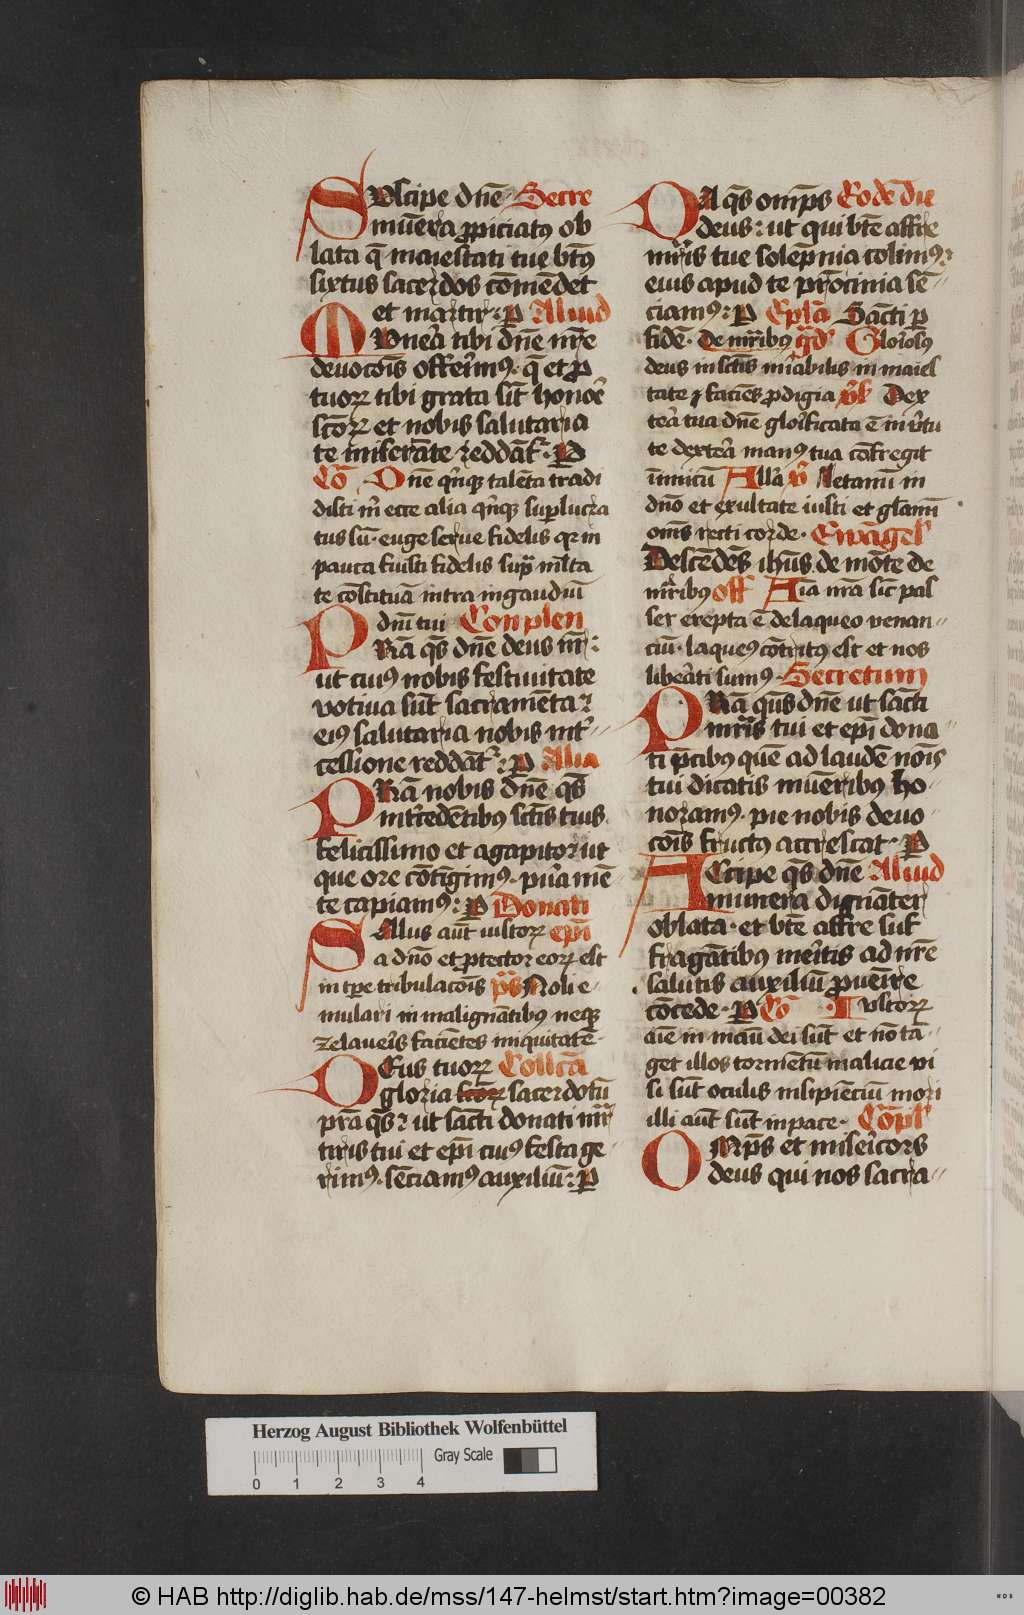 Suscipe dn̄e Secre
mūera ꝓpiciatꝰ ob
lata q̄ maiestati tue bt̄ꝰ
sixtus sacerdos cōmēdet
et martir: P Aliud
Mvnera tibi dn̄e nr̄e
deuocōis offerimꝰ q̄ et ꝓ
tuoꝝ tibi grata sīt honore
sc̄oꝝ et nobis salutaria
te miserāte reddāt᷑ P
Cō Dn̄e qͥnqꝫ talēta tradi
disti mͥ ecce alia qͥnqꝫ suꝑlucra
tus sū euge serue fidelis qꝛ in
pauca fuisti fidelis supͣ ml̄ta
te cōstituā intra in gaudiū
dn̄i tui Conplen
PRā qs̄ dn̄e deus nr̄:
ut cuiꝰ nobis festiuitate
votiua sūt sacramēta ꝛ
eiꝰ salutaria nobis int᷑
cessione reddāt᷑: P Alia
PRā nobis dn̄e qs̄
int᷑cedētibus sc̄tis tuis
felicissimo et agapito ꝛ ut
que ore cōtigimꝰ pura mē
te capiamꝰ: P Donati
Sallus aūt iustoꝝ ep̄i
a dn̄o et ꝓtector eoꝝ est
in tꝑe tribulacōis p̄s Noli e
mulari in malignātibus neqꝫ
zelaueris faciētes iniquitatē
DEus tuoꝝ Collcā
gloria sc̄oꝝ sacerdotū
pr̄a qs̄ ꝛ ut sācti donati mr̄
tiris tui et ep̄i cuiꝰ festa ge
rimꝰ sēciamꝰ auxiliū: P
DA qs̄ om̄ps Eodē die
deus: ut qui bt̄e affre
mr̄is tue solēpnia colimꝰ:
eius apud te pr̄ocinia sē
ciamꝰ: P Epl̄a Sācti ꝑ
fidē De mr̄ibus gd̄ Gloriosus
deus in sc̄tis mirabilis in maies
tate ꝛ faciēs ꝓdigia v̄s Dex
tera tua dn̄e glorificata ē in v̄tu
te dextera manꝰ tua cōfregit
inimicū All̄a v̄ Letamī in
dn̄o et exultate iusti et gl̄amī
om̄s recti corde Ewāgel̄
Descēdēs ihūs de mōte de
mr̄ibus off Aīa nr̄a sic̄ pas
ser erepta ē de laqueo venan
ciū laqueꝰ cōtritꝰ est et nos
liberati sumꝰ Secretum
PRā qūs dn̄e ut sācti
mr̄is tui et ep̄i dona
ti p̄cibus quē ad laudē nōis
tui dicatis mūeribus ho
noramꝰ pie nobis deuo
cōis fructꝰ accrescat P
ACcipe qs̄ dn̄e Aliud
munera dignāter
oblata et bt̄e affre suf
fragātibus meritis ad nr̄e
salutis auxiliū ꝓuenire
cōcede P Cō Iustoꝝ
aīe in manū dei sūt et nō tā
get illos tormētū malicie vi
si sūt oculis insipiēciū mori
illi aūt sūt in pace Cōpl̄
OMp̄s et misericors
deus qui nos sacra
Herzog August Bibliothek Wolfenbüttel
Gray Scale
0 1 2 3 4
© HAB http://diglib.hab.de/mss/147-helmst/start.htm?image=00382